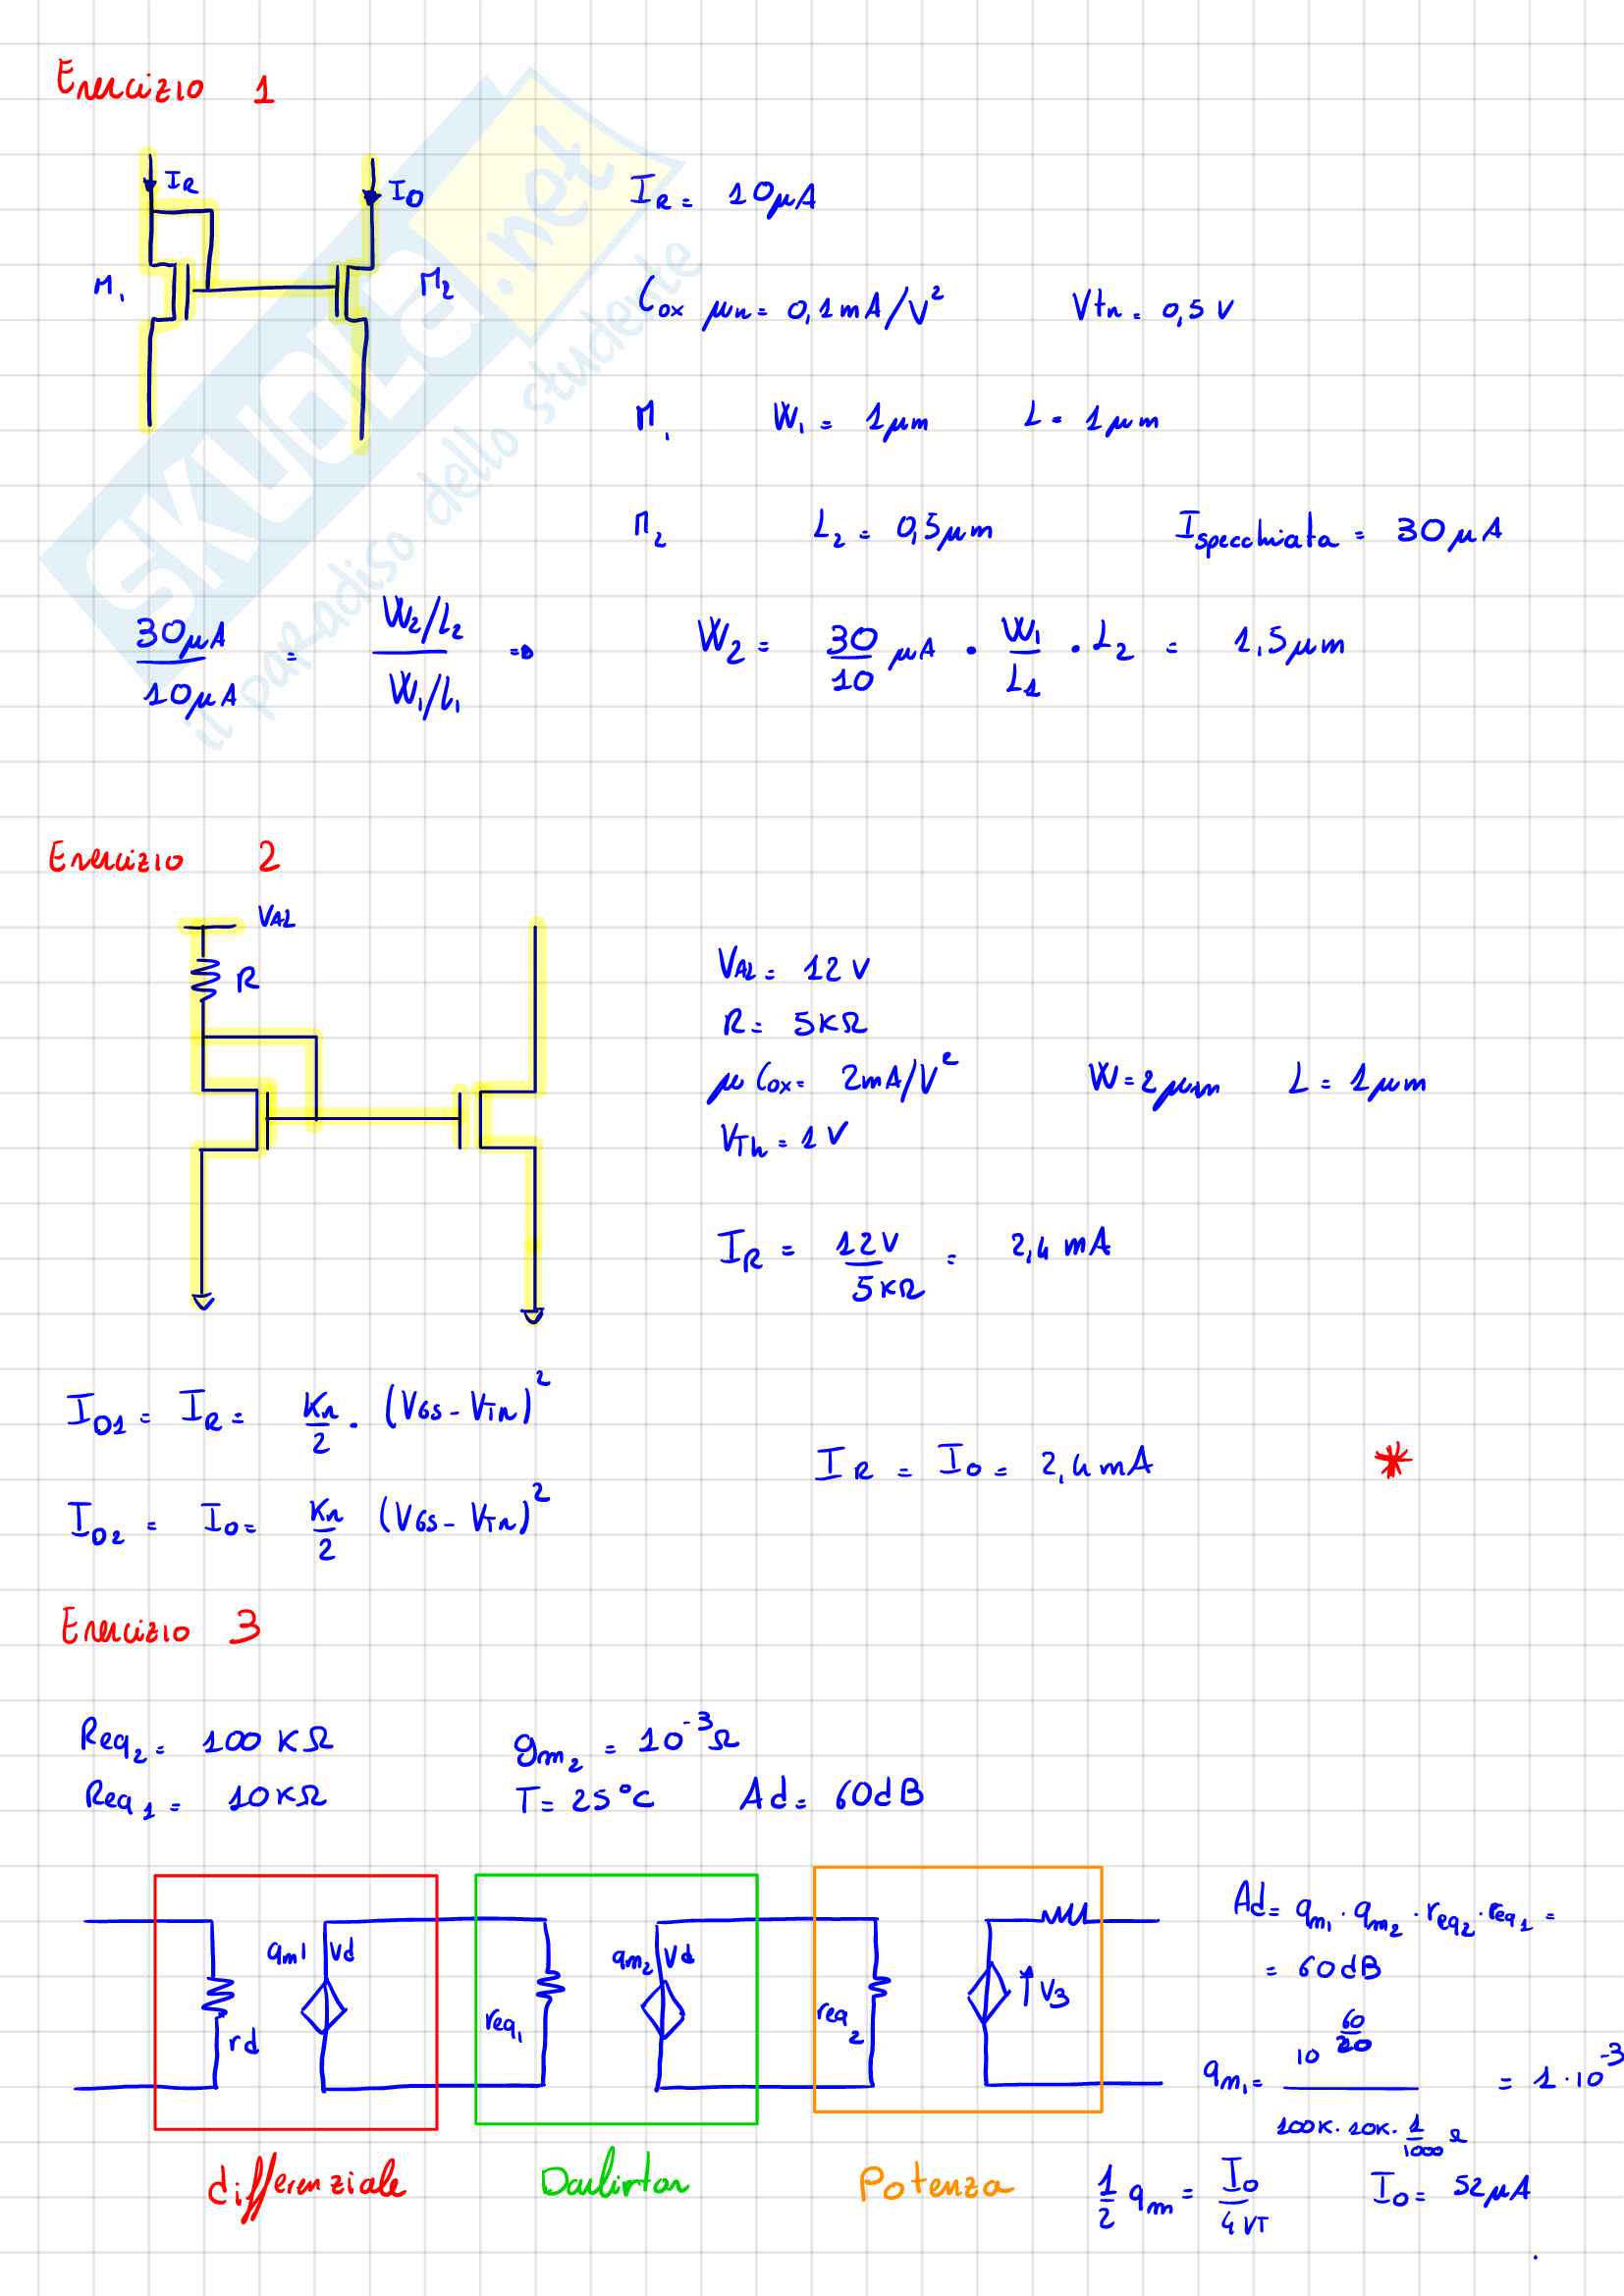 Esercizio 1
IR
IO
M1
M2
IR = 10μA
Cox μn = 0,1mA/V²
Vtn = 0,5 V
M1 W1 = 1μm L = 1μm
M2 L2 = 0,5μm Ispecchiata = 30μA
30μA / 10μA = W2/L2 / W1/L1 =>
W2 = 30/10 μA · W1/L1 · L2 = 1,5μm
SKUOLA.net
il paradiso dello studente
Esercizio 2
VAL
R
VAL = 12 V
R = 5KΩ
μCox = 2mA/V²
W = 2μm L = 1μm
VTh = 1V
IR = 12V / 5KΩ = 2,4 mA
ID1 = IR = Kn/2 · (VGS - VTn)²
IR = IO = 2,4 mA *
ID2 = IO = Kn/2 (VGS - VTn)²
Esercizio 3
Req2 = 100 KΩ
gm2 = 10⁻³Ω
Req1 = 10KΩ
T = 25°C
Ad = 60dB
rd
gm1 Vd
req1
gm2 Vd
req2
V3
Ad = gm1 · gm2 · req2 · req1 =
= 60dB
gm1 = 10^60/20 / 100K · 10K · 1/1000 Ω = 1·10⁻³
differenziale
Darlinton
Potenza
1/2 gm = IO / 4VT
IO = 52μA